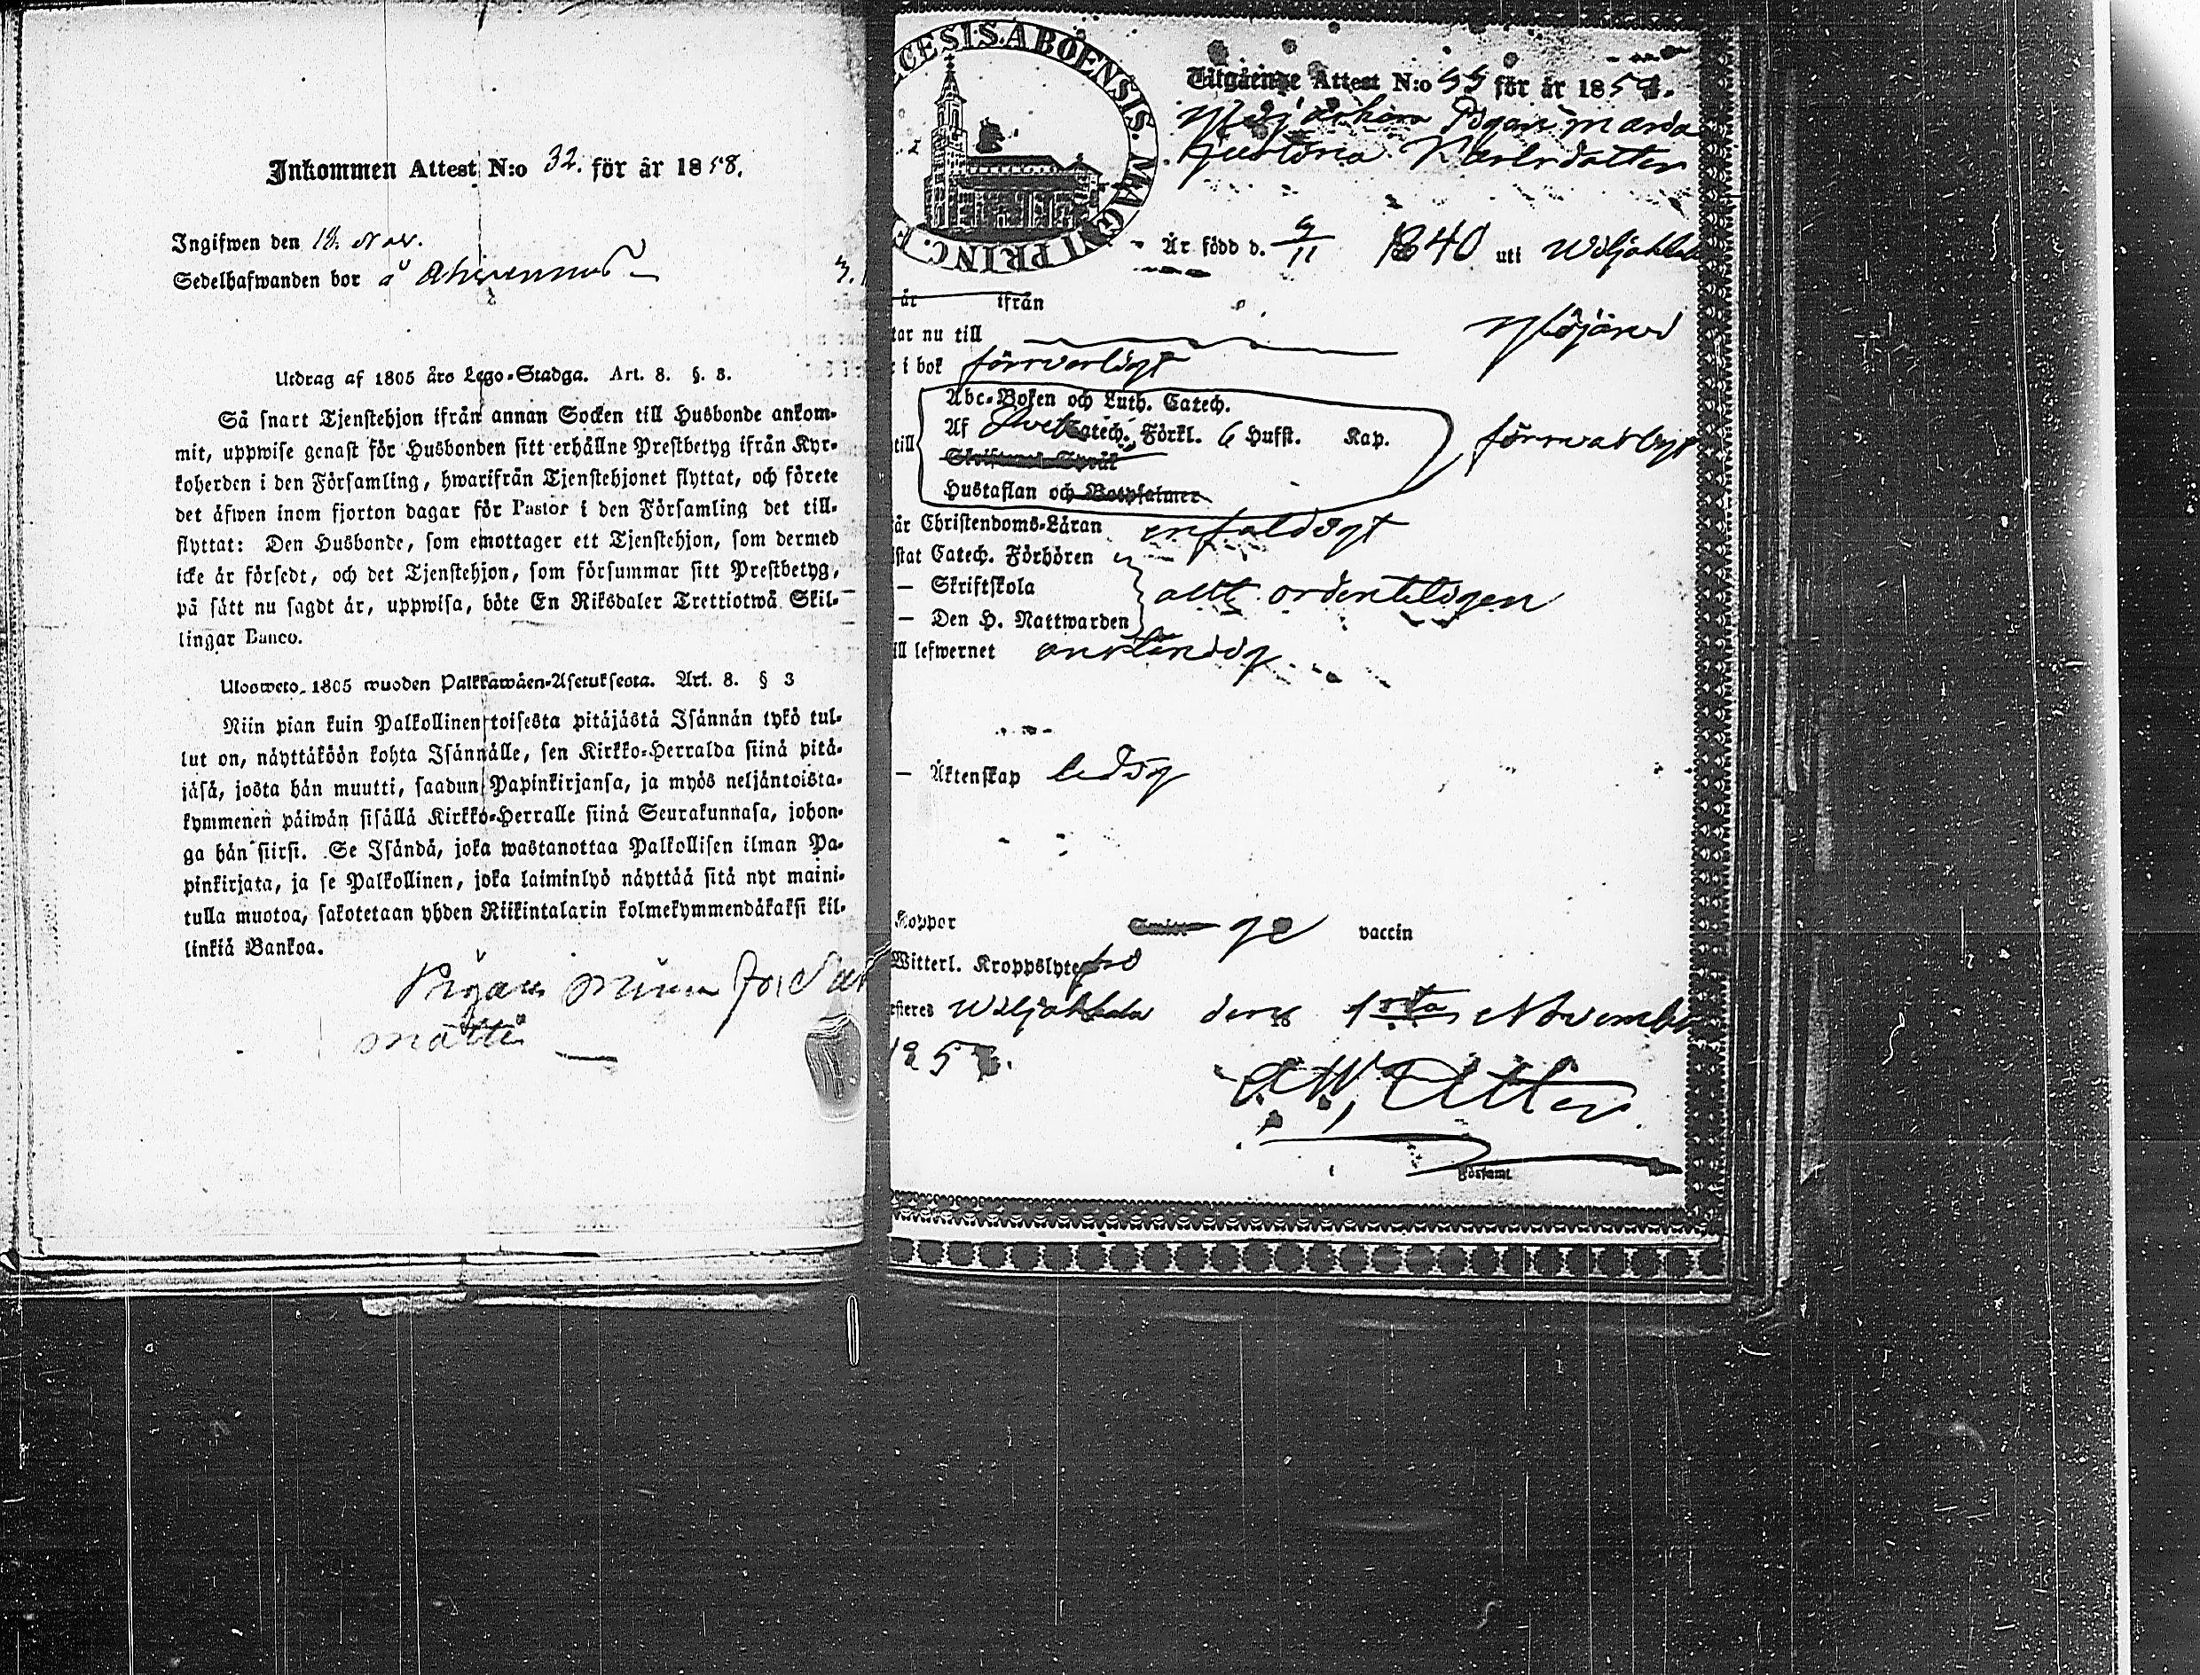 Inkommen Attest N:o 32. för år 1858.
Ingifwen den 18. Nov.
Sedelhafwanden bor å
Utdrag af 1805 års Lego-Stadga. Art. 8. §. 3.
Så snart Tjenstehjon ifrån annan Socken till Husbonde ankom-
mit, uppwise genast för Husbonden sitt erhållne Prestbetyg ifrån Kyr-
koherden i den Församling, hwarifrån Tjenstehjonet flyttat, och förete
det äfwen inom fjorton dagar för Pastor i den Församling det till-
flyttat: Den Husbonde, som emottager ett Tjenstehjon, som dermed
icke är försedt, och det Tjenstehjon, som försummar sitt Prestbetyg,
på sätt nu sagdt är, uppwisa, böte En Riksdaler Trettiotwå Skil-
lingar Banco.
Ulosweto 1805 wuoden Palkkawäen-Asetuksesta. Art. 8. § 3
Niin pian kuin Palkollinen toisesta pitäjästä Isännän tykö tul-
lut on, näyttäköön kohta Isännälle, sen Kirkko-Herralda siinä pitä-
jäsä, josta hän muutti, saadun Papinkirjansa, ja myös neljäntoista-
kymmenen päiwän sisällä Kirkko-Herralle siinä Seurakunnasa, johon-
ga hän siirsi. Se Isändä, joka wastanottaa Palkollisen ilman Pa-
pinkirjata, ja se Palkollinen, joka laiminlyö näyttää sitä nyt maini-
tulla muotoa, sakotetaan yhden Riikintalarin kolmekymmendäkaksi kil-
linkiä Bankoa.
Pigan
CESIS ABOENSIS. MAGNI PRINC. F
Utgående Attest N:o för år 185
Pigan Maria
Gustava Karlsdotter
Är född d. 1840 uti Wiljakkala
är ifrån
tar nu till Ylöjärvi
i bok försvarligt
Abc-Boken och Luth. Catech.
till Af Svet Catech. Förkl. 6 Hufst. Kap. försvarligt
Skriftenes Språk
Hustaflan och Botpsalmer
är Christendoms-Läran enfaldigt
stat Catech. Förhören
— Skriftskola allt ordentligen
— Den H. Nattwarden
ill lefwernet anständig
— Äktenskap ledig
Koppor vaccin
Witterl. Kroppslyte fri
esteres Wiljakkala den 1sta November
185